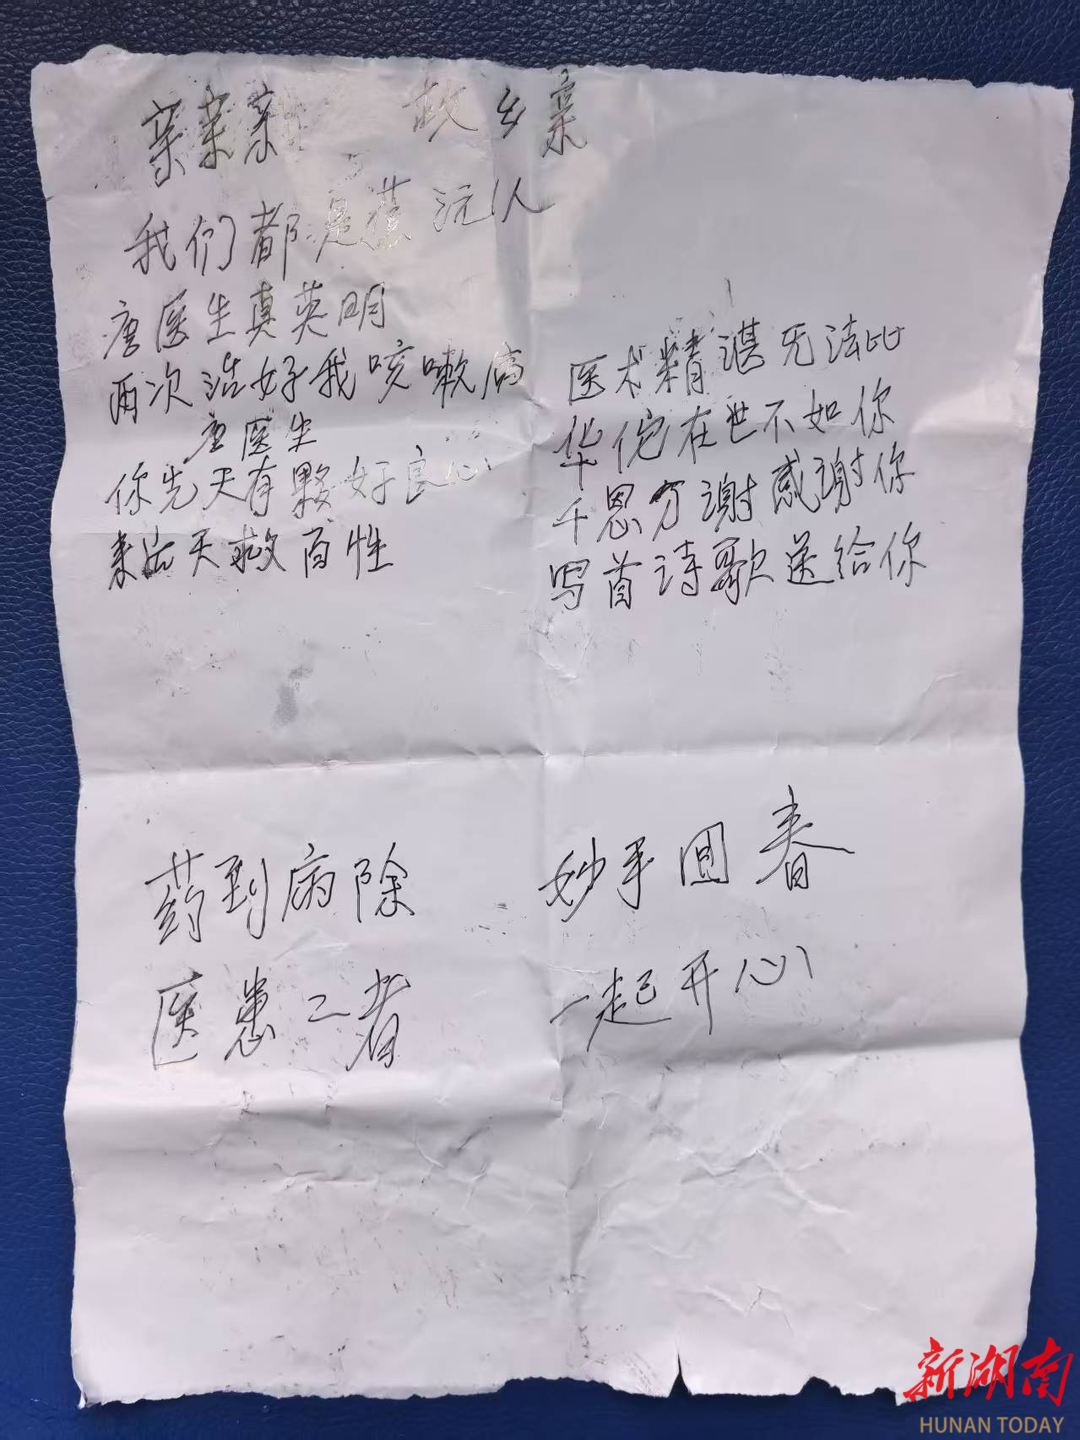 亲亲亲 故乡亲
我们都是沅人
唐医生真英明
两次治好我咳嗽病
唐医生
你先天有夥好良心
来天救百性
医术精谌无法比
华佗在世不如你
千恩万谢感谢你
写首诗歌送给你
药到病除 妙手回春
医患二者 一起开心
新湖南
HUNAN TODAY